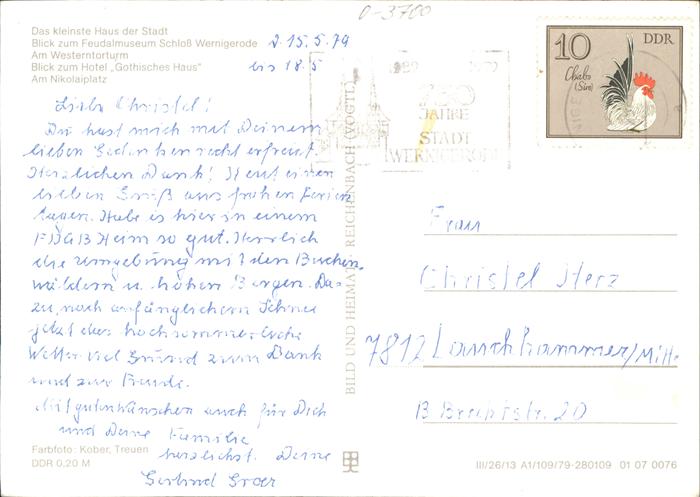 Das kleinste Haus der Stadt
Blick zum Feudalmuseum Schloß Wernigerode
Am Westerntorturm
Blick zum Hotel „Gothisches Haus"
Am Nikolaiplatz
15.5.79
bis 18.5
0-3700
10 DDR
Chabo
750
JAHRE
STADT
WERNIGERODE
Liebe Christel!
Du hast mich mit Deinem
lieben Gedenken recht erfreut.
Herzlichen Dank! Heut einen
lieben Gruß aus frohen Ferien
tagen. Habe es hier in einem
FDGB Heim so gut. Herrlich
die Umgebung mit den Buchen-
wäldern u. hohen Bergen. Da-
zu nach anfänglichem Schnee
jetzt das hochsommerliche
Wetter viel Grund zum Dank
und zur Freude.
Mit guten Wünschen auch für Dich
und Deine Familie
herzlichst Deine
Gertrud
BILD UND HEIMAT REICHENBACH (VOGTL)
Frau
Christel Herz
7812 Lauchhammer/Mitte
B Brechtstr. 20
Farbfoto: Kober, Treuen
DDR 0,20 M
III/26/13 A1/109/79-280109 01 07 0076